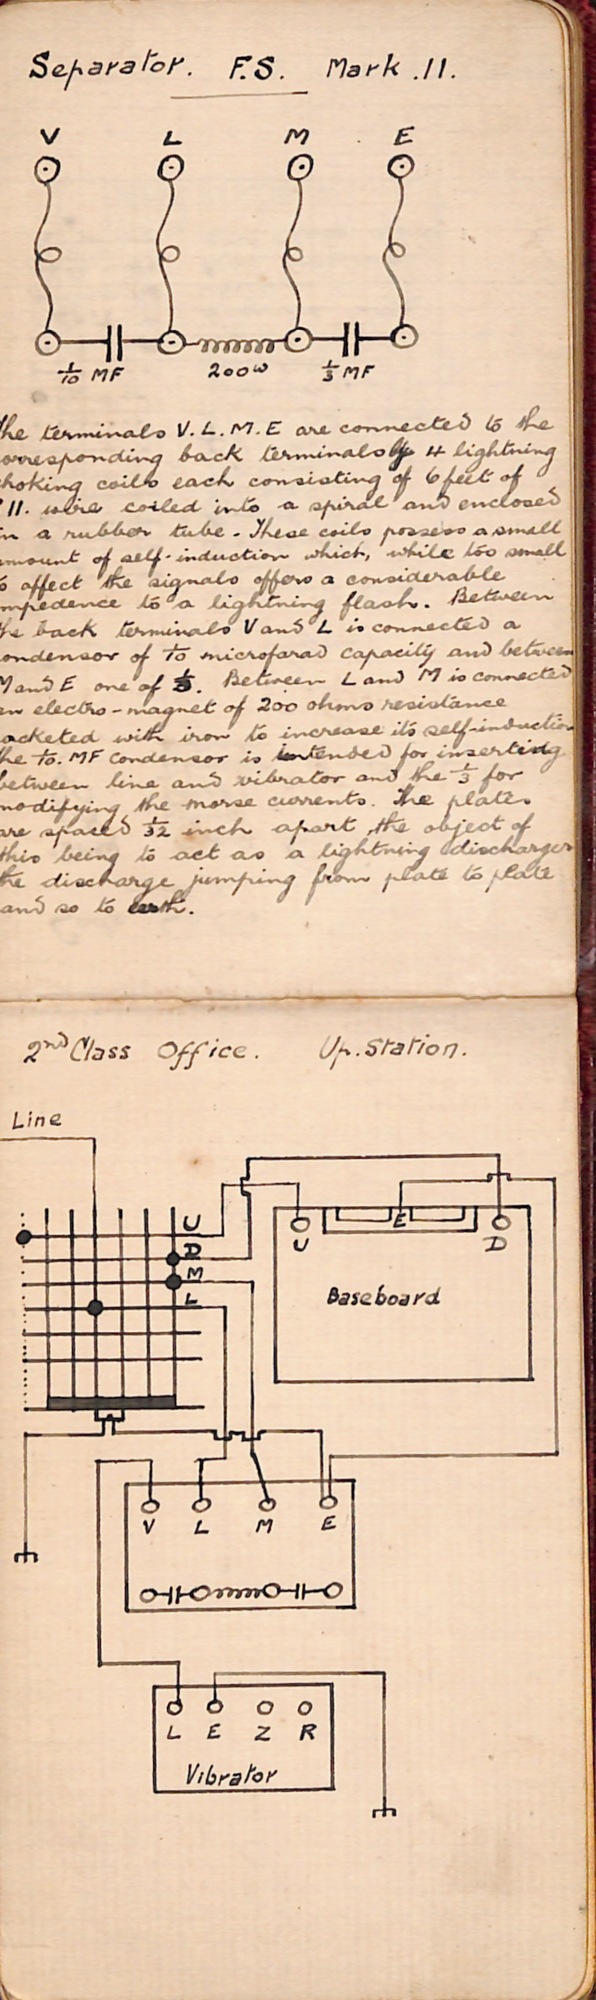 Separator. F.S. Mark .II.
V L M E
1/10 MF 200ω 1/3 MF
he terminals V. L. M. E are connected to the
orresponding back terminals of 4 lightning
hoking coils each consisting of 6 feet of
11. wire coiled into a spiral and enclosed
n a rubber tube. These coils possess a small
mount of self-induction which, while too small
o affect the signals offers a considerable
mpedence to a lightning flash. Between
he back terminals V and L is connected a
ondensor of 1/10 microfarad capacity and between
M and E one of 1/3. Between L and M is connected
n electro-magnet of 200 ohms resistance
acketed with iron to increase its self-induction
he 1/10. MF condensor is intended for inserting
between line and vibrator and the 1/3 for
modifying the morse currents. The plates
are spaced 1/32 inch apart, the object of
this being to act as a lightning discharger
he discharge jumping from plate to plate
and so to earth.
2nd Class Office. Up. Station.
Line
U
D
M
L
U E D
Baseboard
V L M E
L E Z R
Vibrator